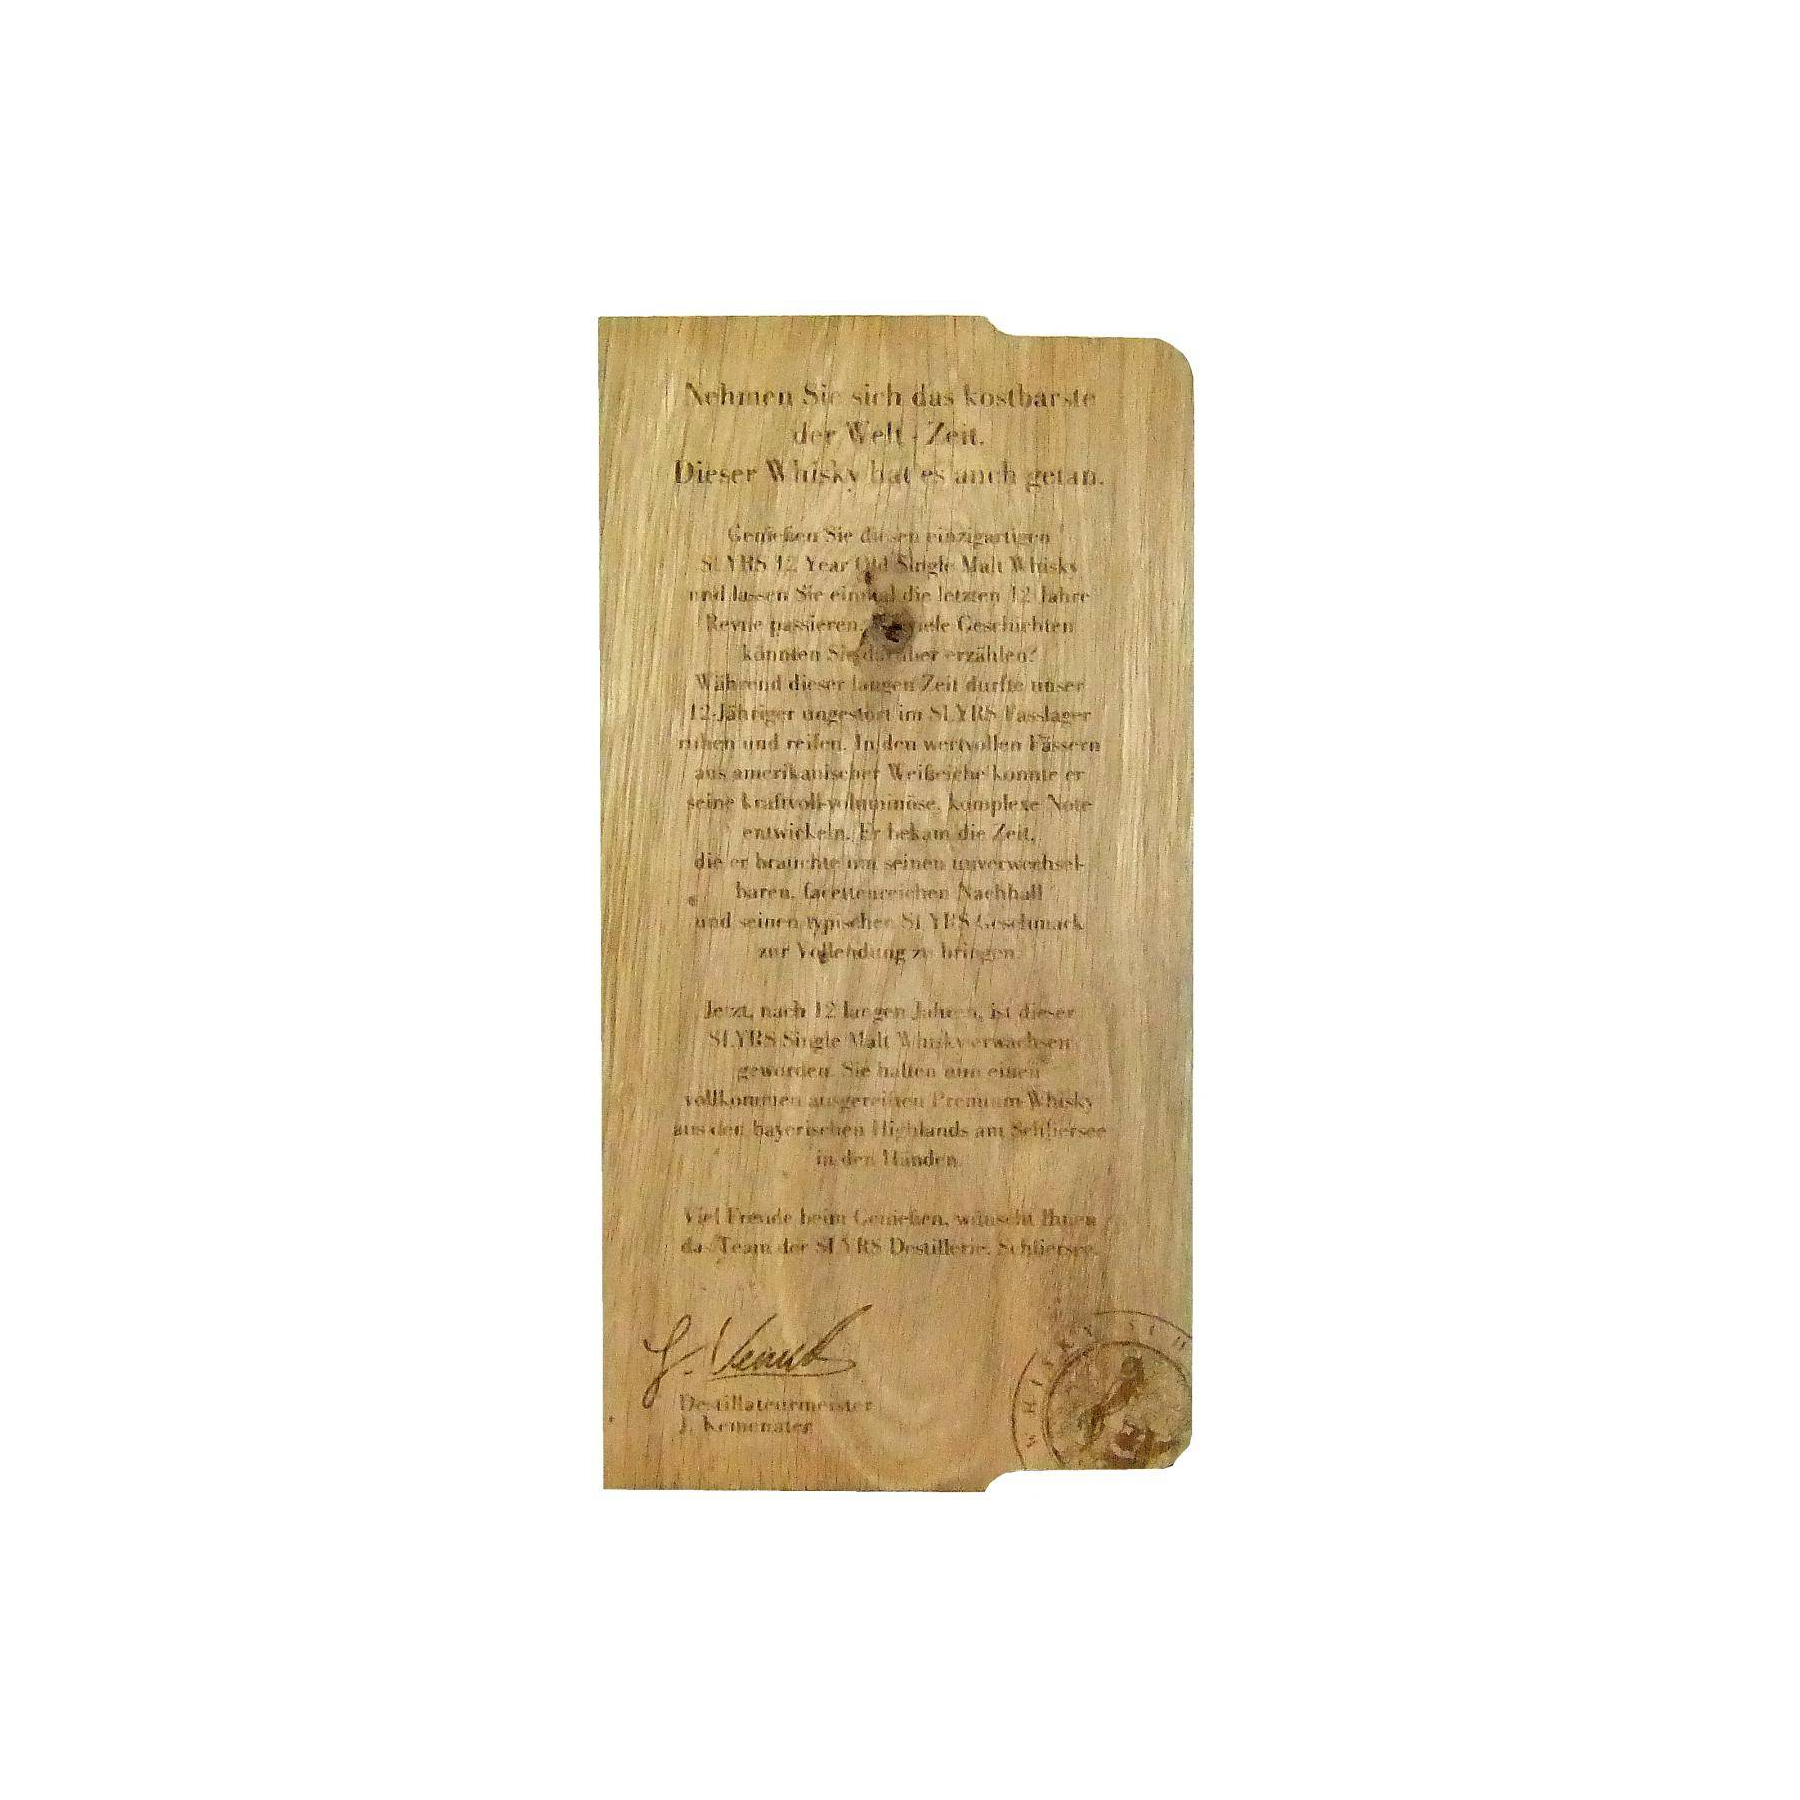 Nehmen Sie sich das kostbarste
der Welt - Zeit.
Dieser Whisky hat es auch getan.
Genießen Sie diesen einzigartigen
SLYRS 12 Year Old Single Malt Whisky
und lassen Sie einmal die letzten 12 Jahre
Revue passieren. Wieviele Geschichten
könnten Sie darüber erzählen?
Während dieser langen Zeit durfte unser
12-Jähriger ungestört im SLYRS Fasslager
ruhen und reifen. In den wertvollen Fässern
aus amerikanischer Weißeiche konnte er
seine kraftvoll-voluminöse, komplexe Note
entwickeln. Er bekam die Zeit,
die er brauchte um seinen unverwechsel-
baren, facettenreichen Nachhall
und seinen typischen SLYRS Geschmack
zur Vollendung zu bringen.
Jetzt, nach 12 langen Jahren, ist dieser
SLYRS Single Malt Whisky erwachsen
geworden. Sie halten nun einen
vollkommen ausgereiften Premium-Whisky
aus den bayerischen Highlands am Schliersee
in den Händen.
Viel Freude beim Genießen, wünscht Ihnen
das Team der SLYRS Destillerie, Schliersee.
Destillateurmeister
J. Kemenater
WHISKY SCH